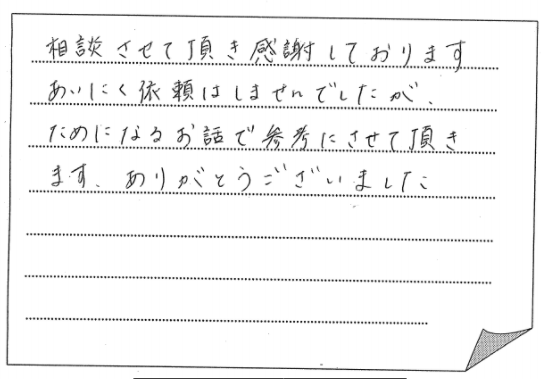 相談させて頂き感謝しております
あいにく依頼はしませんでしたが、
ためになるお話で参考にさせて頂き
ます、ありがとうございました